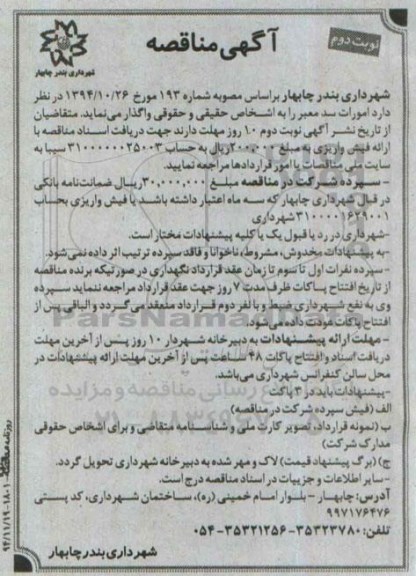 نوبت دوم
آگهی مناقصه
شهرداری بندر چابهار
شهرداری بندر چابهار براساس مصوبه شماره ۱۹۳ مورخ ۱۳۹۴/۱۰/۲۶ در نظر
دارد امورات سد معبر را به اشخاص حقیقی و حقوقی واگذار می‌نماید. متقاضیان
از تاریخ نشر آگهی نوبت دوم ۱۰ روز مهلت دارند جهت دریافت اسناد مناقصه با
ارائه فیش واریزی به مبلغ ۲۰۰,۰۰۰ ریال به حساب ۳۱۰۰۰۰۰۰۲۵۰۰۳ سیبا به
سایت ملی مناقصات یا امور قراردادها مراجعه نمایید.
- سپرده شرکت در مناقصه مبلغ ۳۰,۰۰۰,۰۰۰ ریال ضمانت‌نامه بانکی
در قبال شهرداری چابهار که سه ماه اعتبار داشته باشد یا فیش واریزی بحساب
۳۱۰۰۰۰۱۶۲۹۰۰۱ شهرداری
-شهرداری در رد یا قبول یک یا کلیه پیشنهادات مختار است.
-به پیشنهادات مخدوش، مشروط، ناخوانا و فاقد سپرده ترتیب اثر داده نمی‌شود.
- سپرده نفرات اول تا سوم تا زمان عقد قرارداد نگهداری در صورتیکه برنده مناقصه
از تاریخ افتتاح پاکات ظرف مدت ۷ روز جهت عقد قرارداد مراجعه ننماید سپرده
وی به نفع شهرداری ضبط و با نفر دوم قرارداد منعقد می‌گردد و الباقی پس از
افتتاح پاکات عودت داده می‌شود.
- مهلت ارائه پیشنهادات به دبیرخانه شهردار ۱۰ روز پس از آخرین مهلت
دریافت اسناد و افتتاح پاکات ۴۸ ساعت پس از آخرین مهلت ارائه پیشنهادات در
محل سالن کنفرانس شهرداری می‌باشد.
-پیشنهادات باید در ۳ پاکت
الف (فیش سپرده شرکت در مناقصه)
ب (نمونه قرارداد، تصویر کارت ملی و شناسنامه متقاضی و برای اشخاص حقوقی
مدارک شرکت)
ج) (برگ پیشنهاد قیمت) لاک و مهر شده به دبیرخانه شهرداری تحویل گردد.
-سایر اطلاعات و جزییات در اسناد مناقصه درج است.
آدرس: چابهار - بلوار امام خمینی (ره)، ساختمان شهرداری، کد پستی
۹۹۷۱۷۶۴۷۶
تلفن: ۳۵۳۲۳۷۸۰-۳۵۳۲۱۲۵۶-۰۵۴
شهرداری بندر چابهار
ParsNamadData